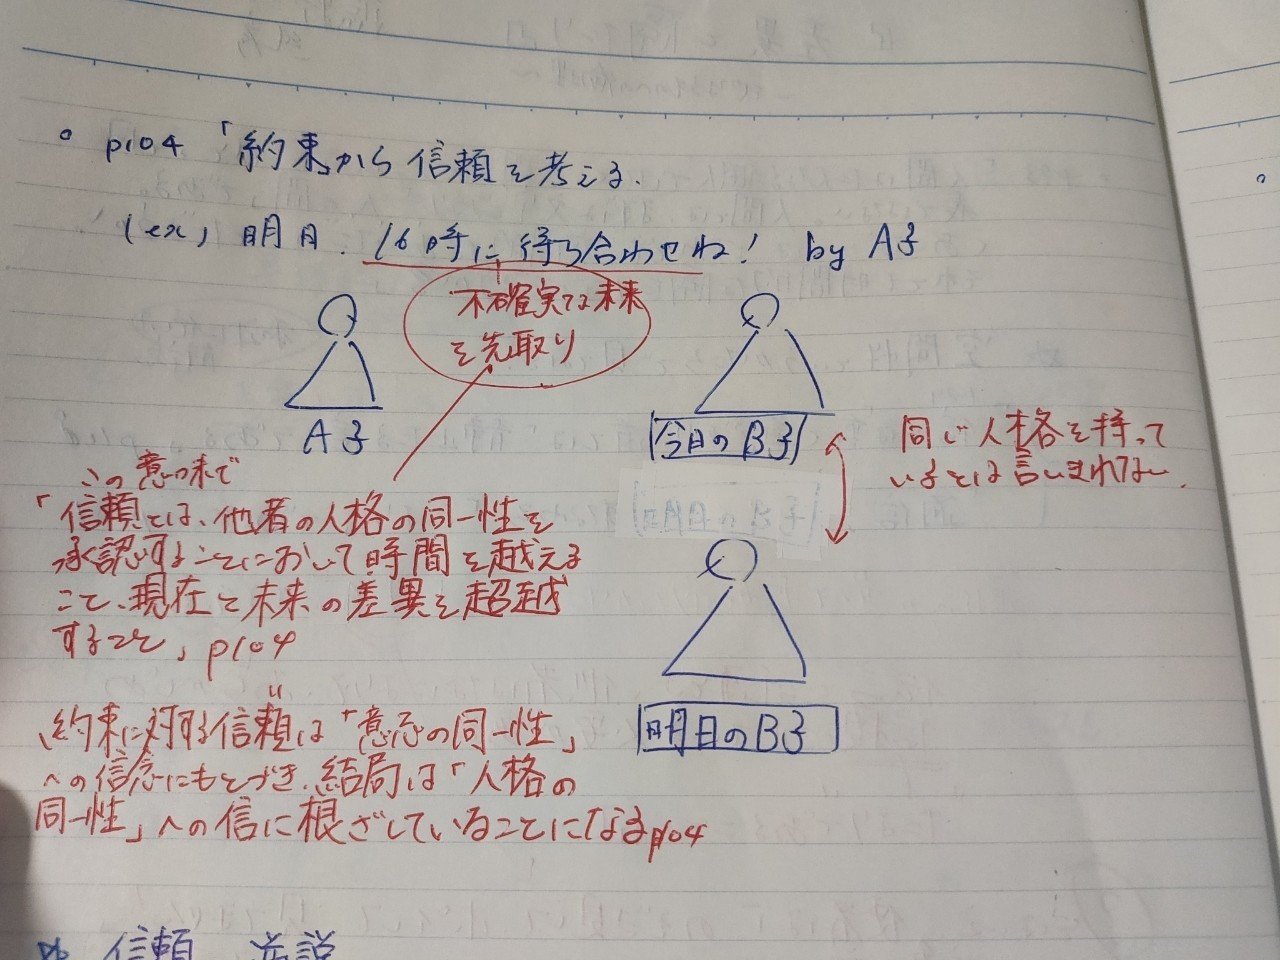 。p104「約束から信頼を考える.
(ex) 明日. 16時に待ち合わせね! by A子
不確実な未来
を先取り
A子
今日のB子
同じ人格を持って
いるとは言いきれない.
この意味で
「信頼とは、他者の人格の同一性を
承認することにおいて時間を越える
こと、現在と未来の差異を超越
すること」p104
明日のB子
〃
約束に対する信頼は「意志の同一性」
への信念にもとづき、結局は「人格の
同一性」への信に根ざしていることになるp104
信頼